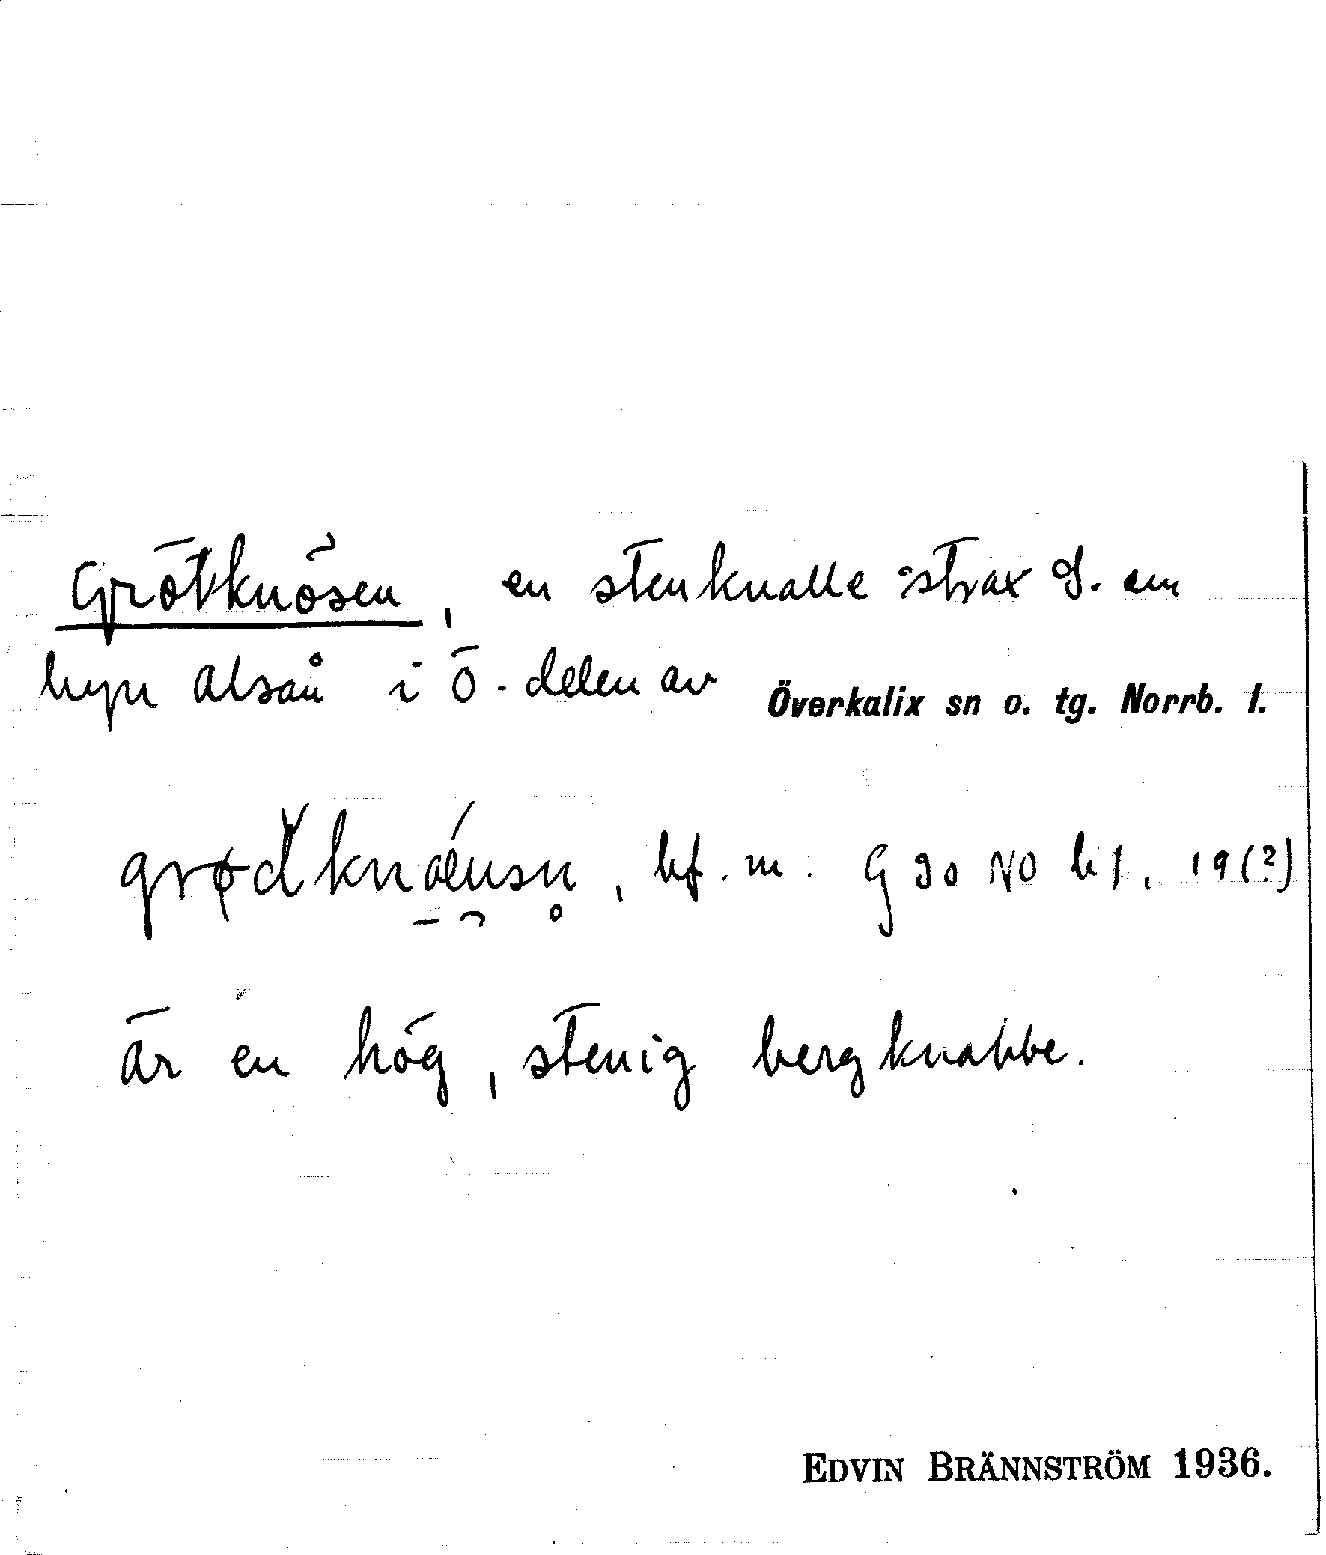 Grötknösen, en stenknalle strax S. om
byn Alsån i Ö-delen av Överkalix sn o. tg. Norrb. l.
bf. m. G 30 NO bl. 19 (?)
är en hög, stenig bergknabbe.
EDVIN BRÄNNSTRÖM 1936.